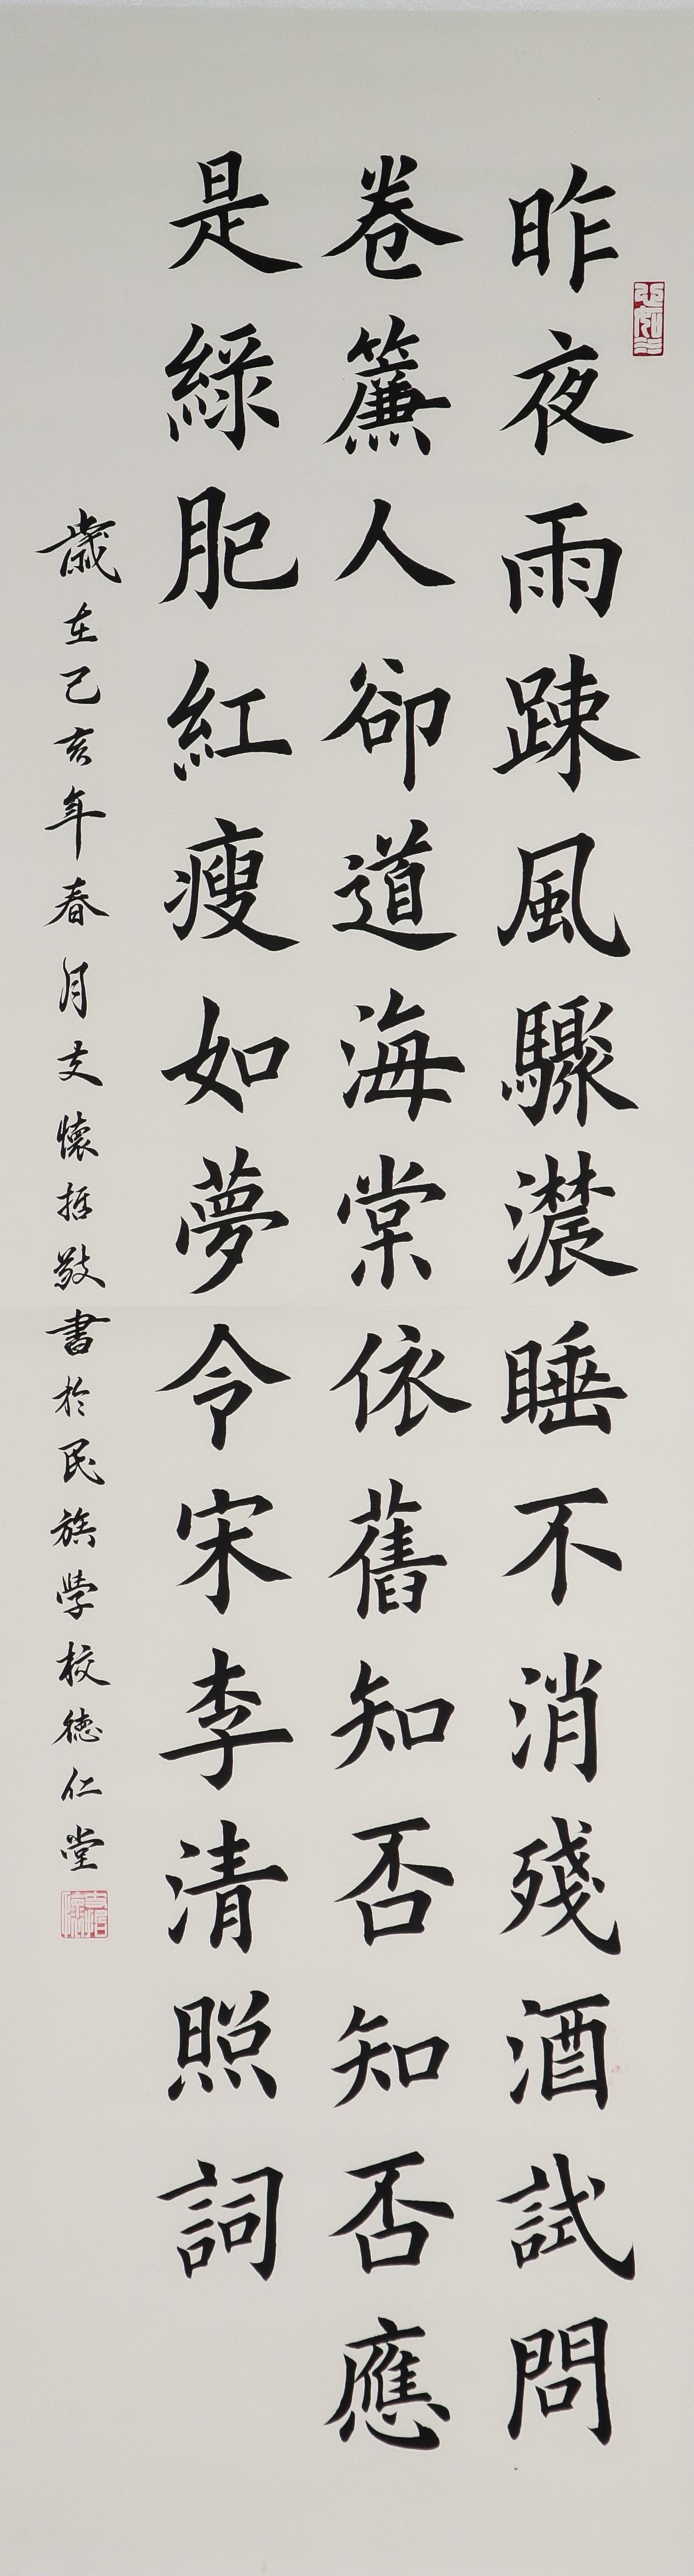 昨夜雨踈風驟濃睡不消殘酒試問
卷簾人卻道海棠依舊知否知否應
是綠肥紅瘦如夢令宋李清照詞
歲在己亥年春月支懷哲敬書於民族學校德仁堂